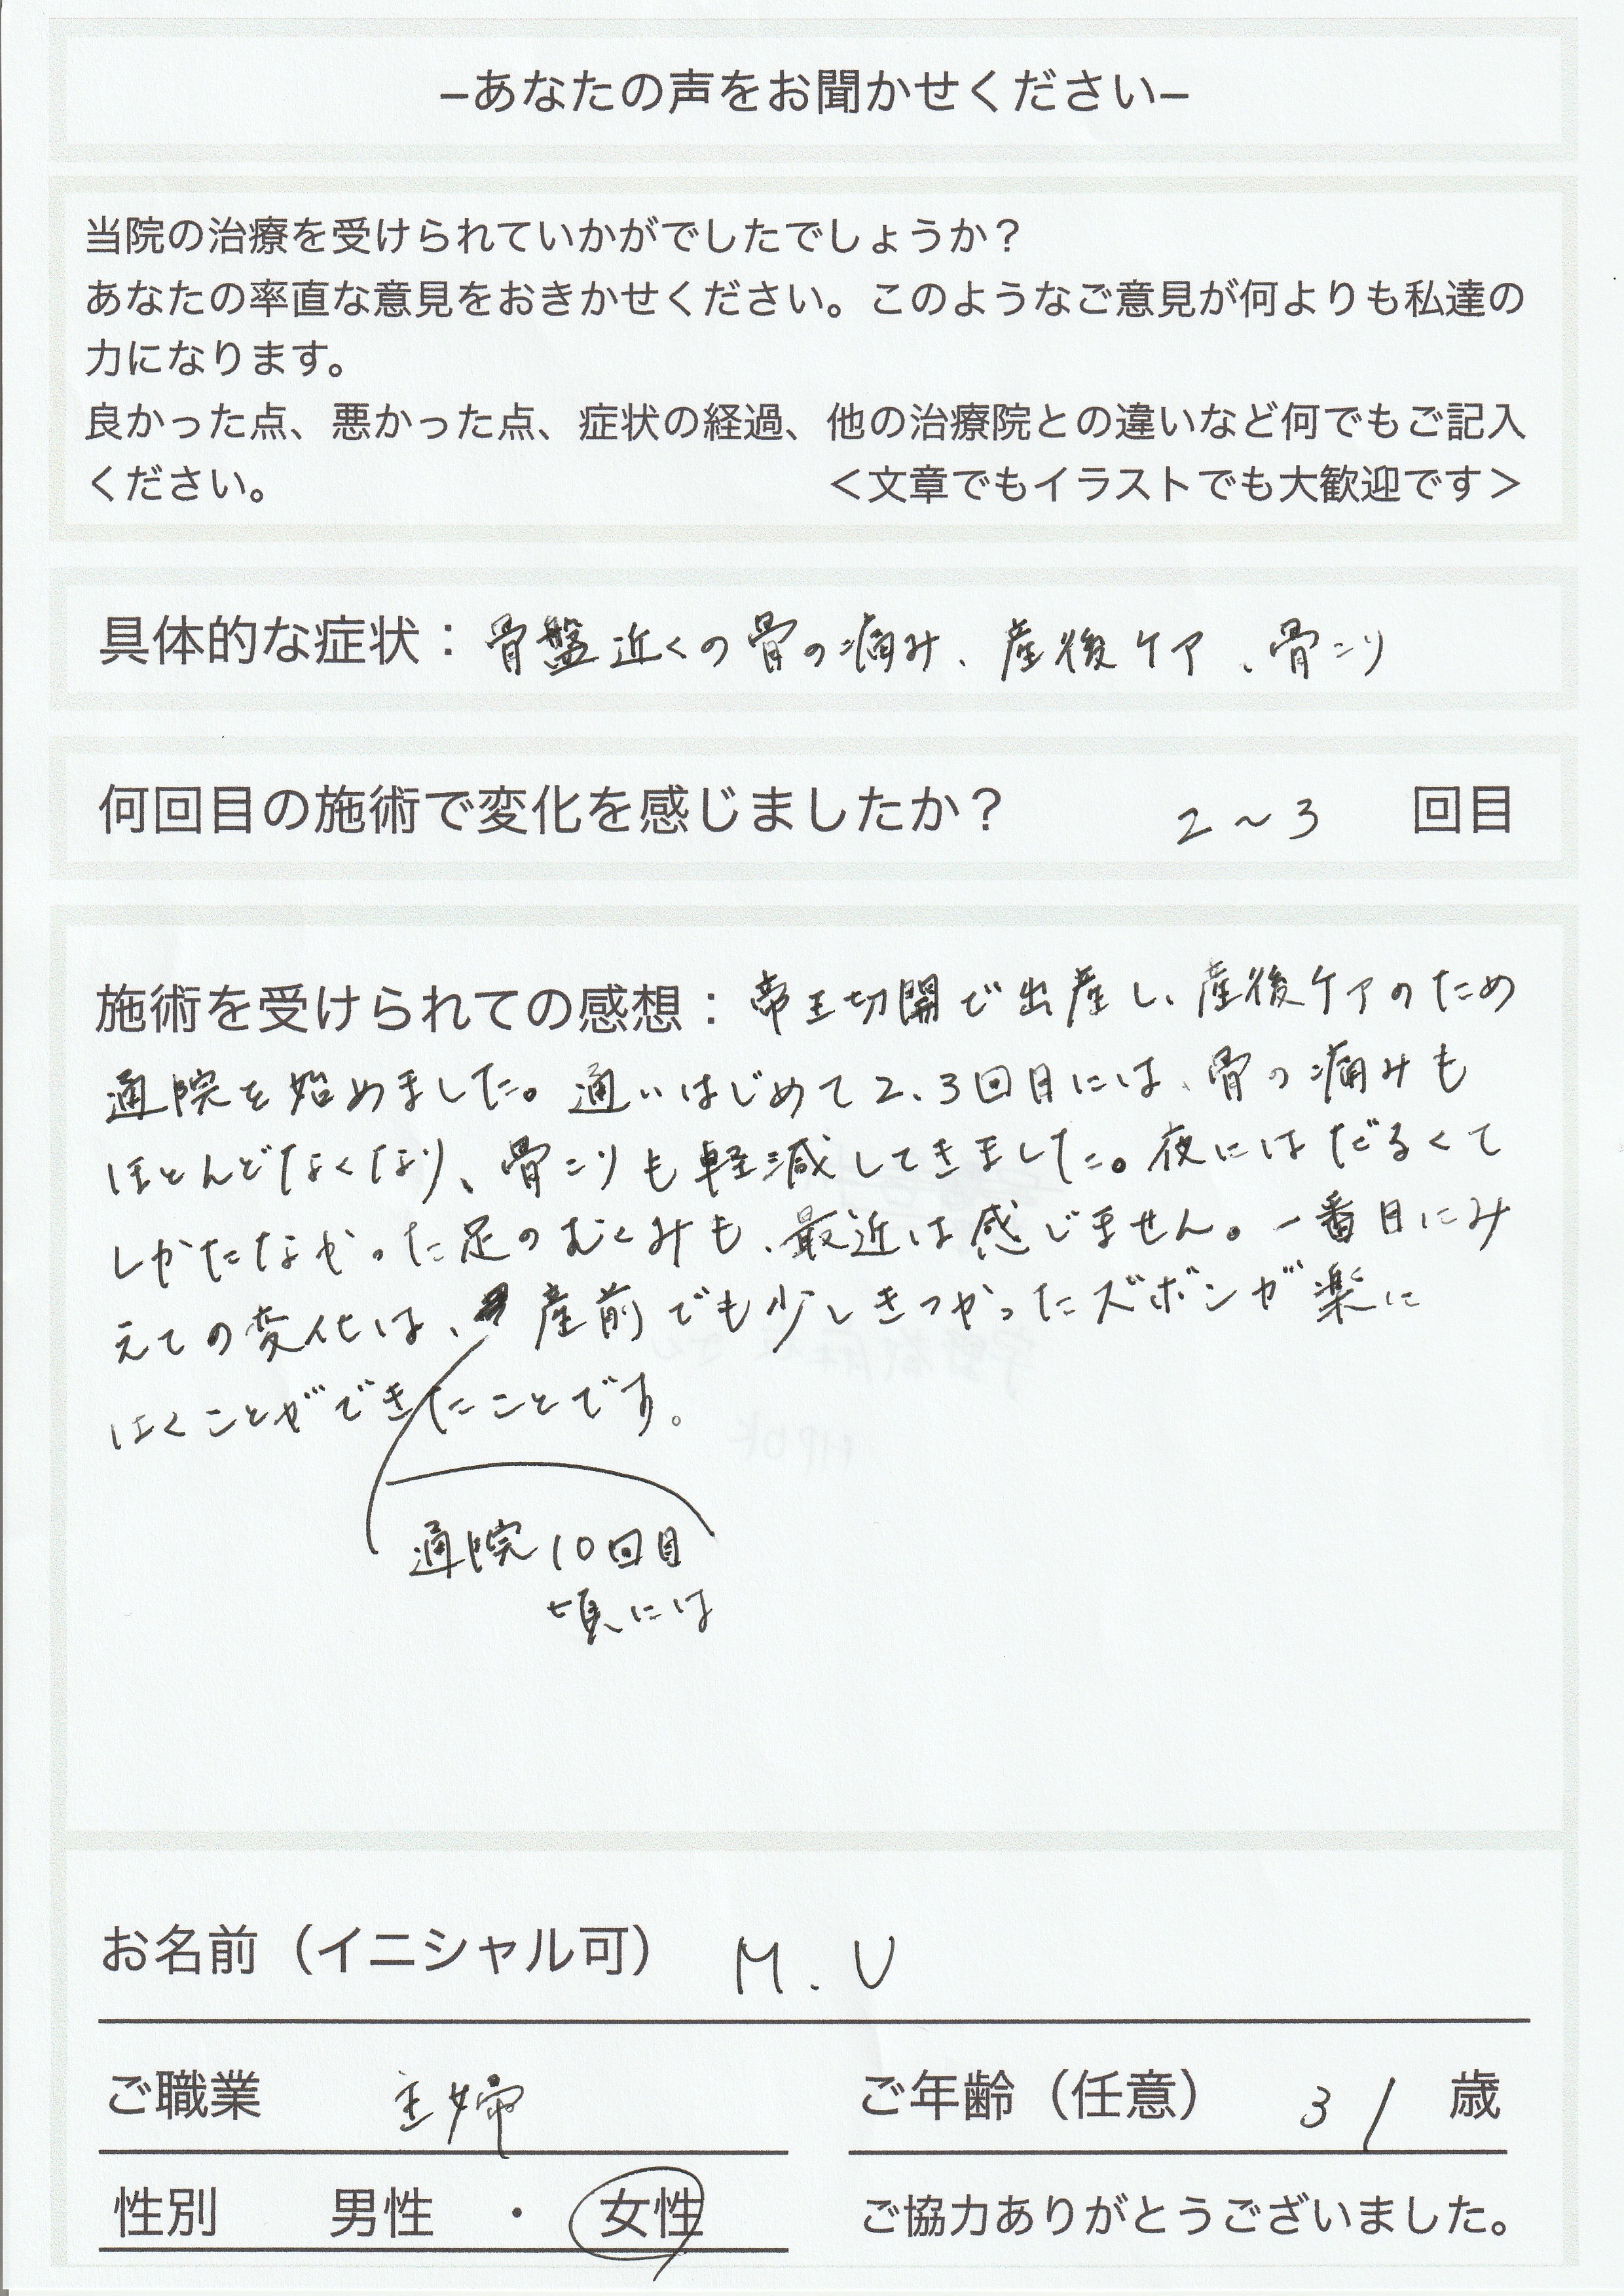 –あなたの声をお聞かせください–
当院の治療を受けられていかがでしたでしょうか？
あなたの率直な意見をおきかせください。このようなご意見が何よりも私達の
力になります。
良かった点、悪かった点、症状の経過、他の治療院との違いなど何でもご記入
ください。 ＜文章でもイラストでも大歓迎です＞
具体的な症状：骨盤近くの骨の痛み、産後ケア、骨こり
何回目の施術で変化を感じましたか？ 2～3 回目
施術を受けられての感想：帝王切開で出産し、産後ケアのため
通院を始めました。通いはじめて2、3回目には、骨の痛みも
ほとんどなくなり、骨こりも軽減してきました。夜にはだるくて
しかたなかった足のむくみも、最近は感じません。一番目にみ
えての変化は、産前でも少しきつかったズボンが楽に
はくことができたことです。
通院10回目
頃には
お名前（イニシャル可） M.U
ご職業 主婦 ご年齢（任意） 31 歳
性別 男性 ・ 女性 ご協力ありがとうございました。